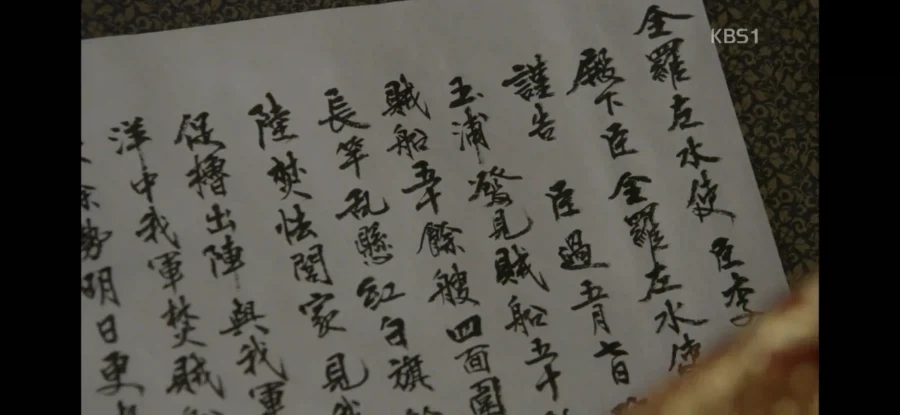 全羅左水使 臣 李
殿下臣 全羅左水使
謹告 臣過五月七日
玉浦發見賊船五十
賊船五十餘艘四面圍
長竿乱懸紅白旗
陸焚怯閭家見我
促櫓出陣與我軍
洋中我軍焚賊船
餘勢明日更
KBS1